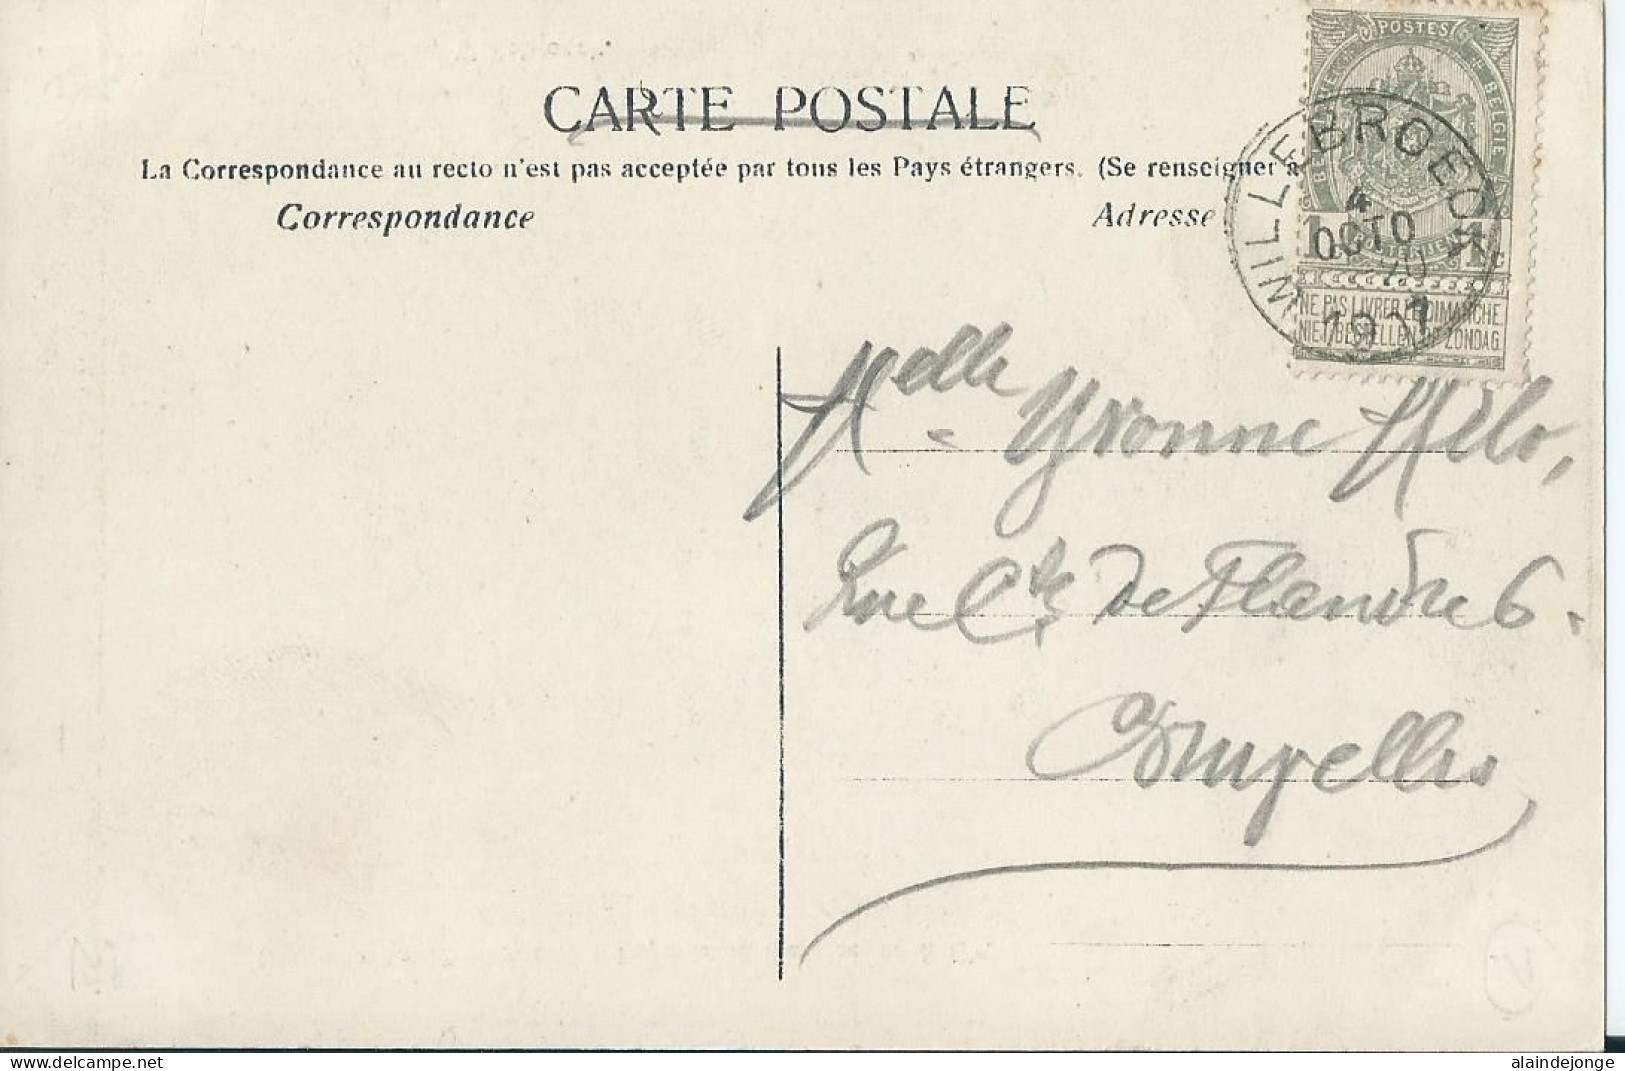 POSTES
BELGIQUE BELGIE
CARTE POSTALE
WILLEBROECK
La Correspondance au recto n'est pas acceptée par tous les Pays étrangers. (Se renseigner à
4
Correspondance
Adresse
OCTO
1c
NE PAS LIVRER LE DIMANCHE.
NIET BESTELLEN OP ZONDAG.
Melle Yvonne
Rue Cte de Flandre 6.
Bruxelles
alaindejonge